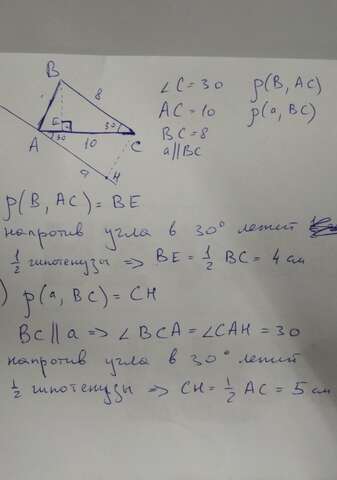 B
8
∠C = 30    ρ(B, AC)
E
30
AC = 10    ρ(a, BC)
A
30
10
C
BC = 8
a
H
a || BC
ρ(B, AC) = BE
напротив угла в 30° лежит
1/2 гипотенузы ⇒ BE = 1/2 BC = 4 см
) ρ(a, BC) = CH
BC || a ⇒ ∠BCA = ∠CAH = 30
напротив угла в 30° лежит
1/2 гипотенузы ⇒ CH = 1/2 AC = 5 см